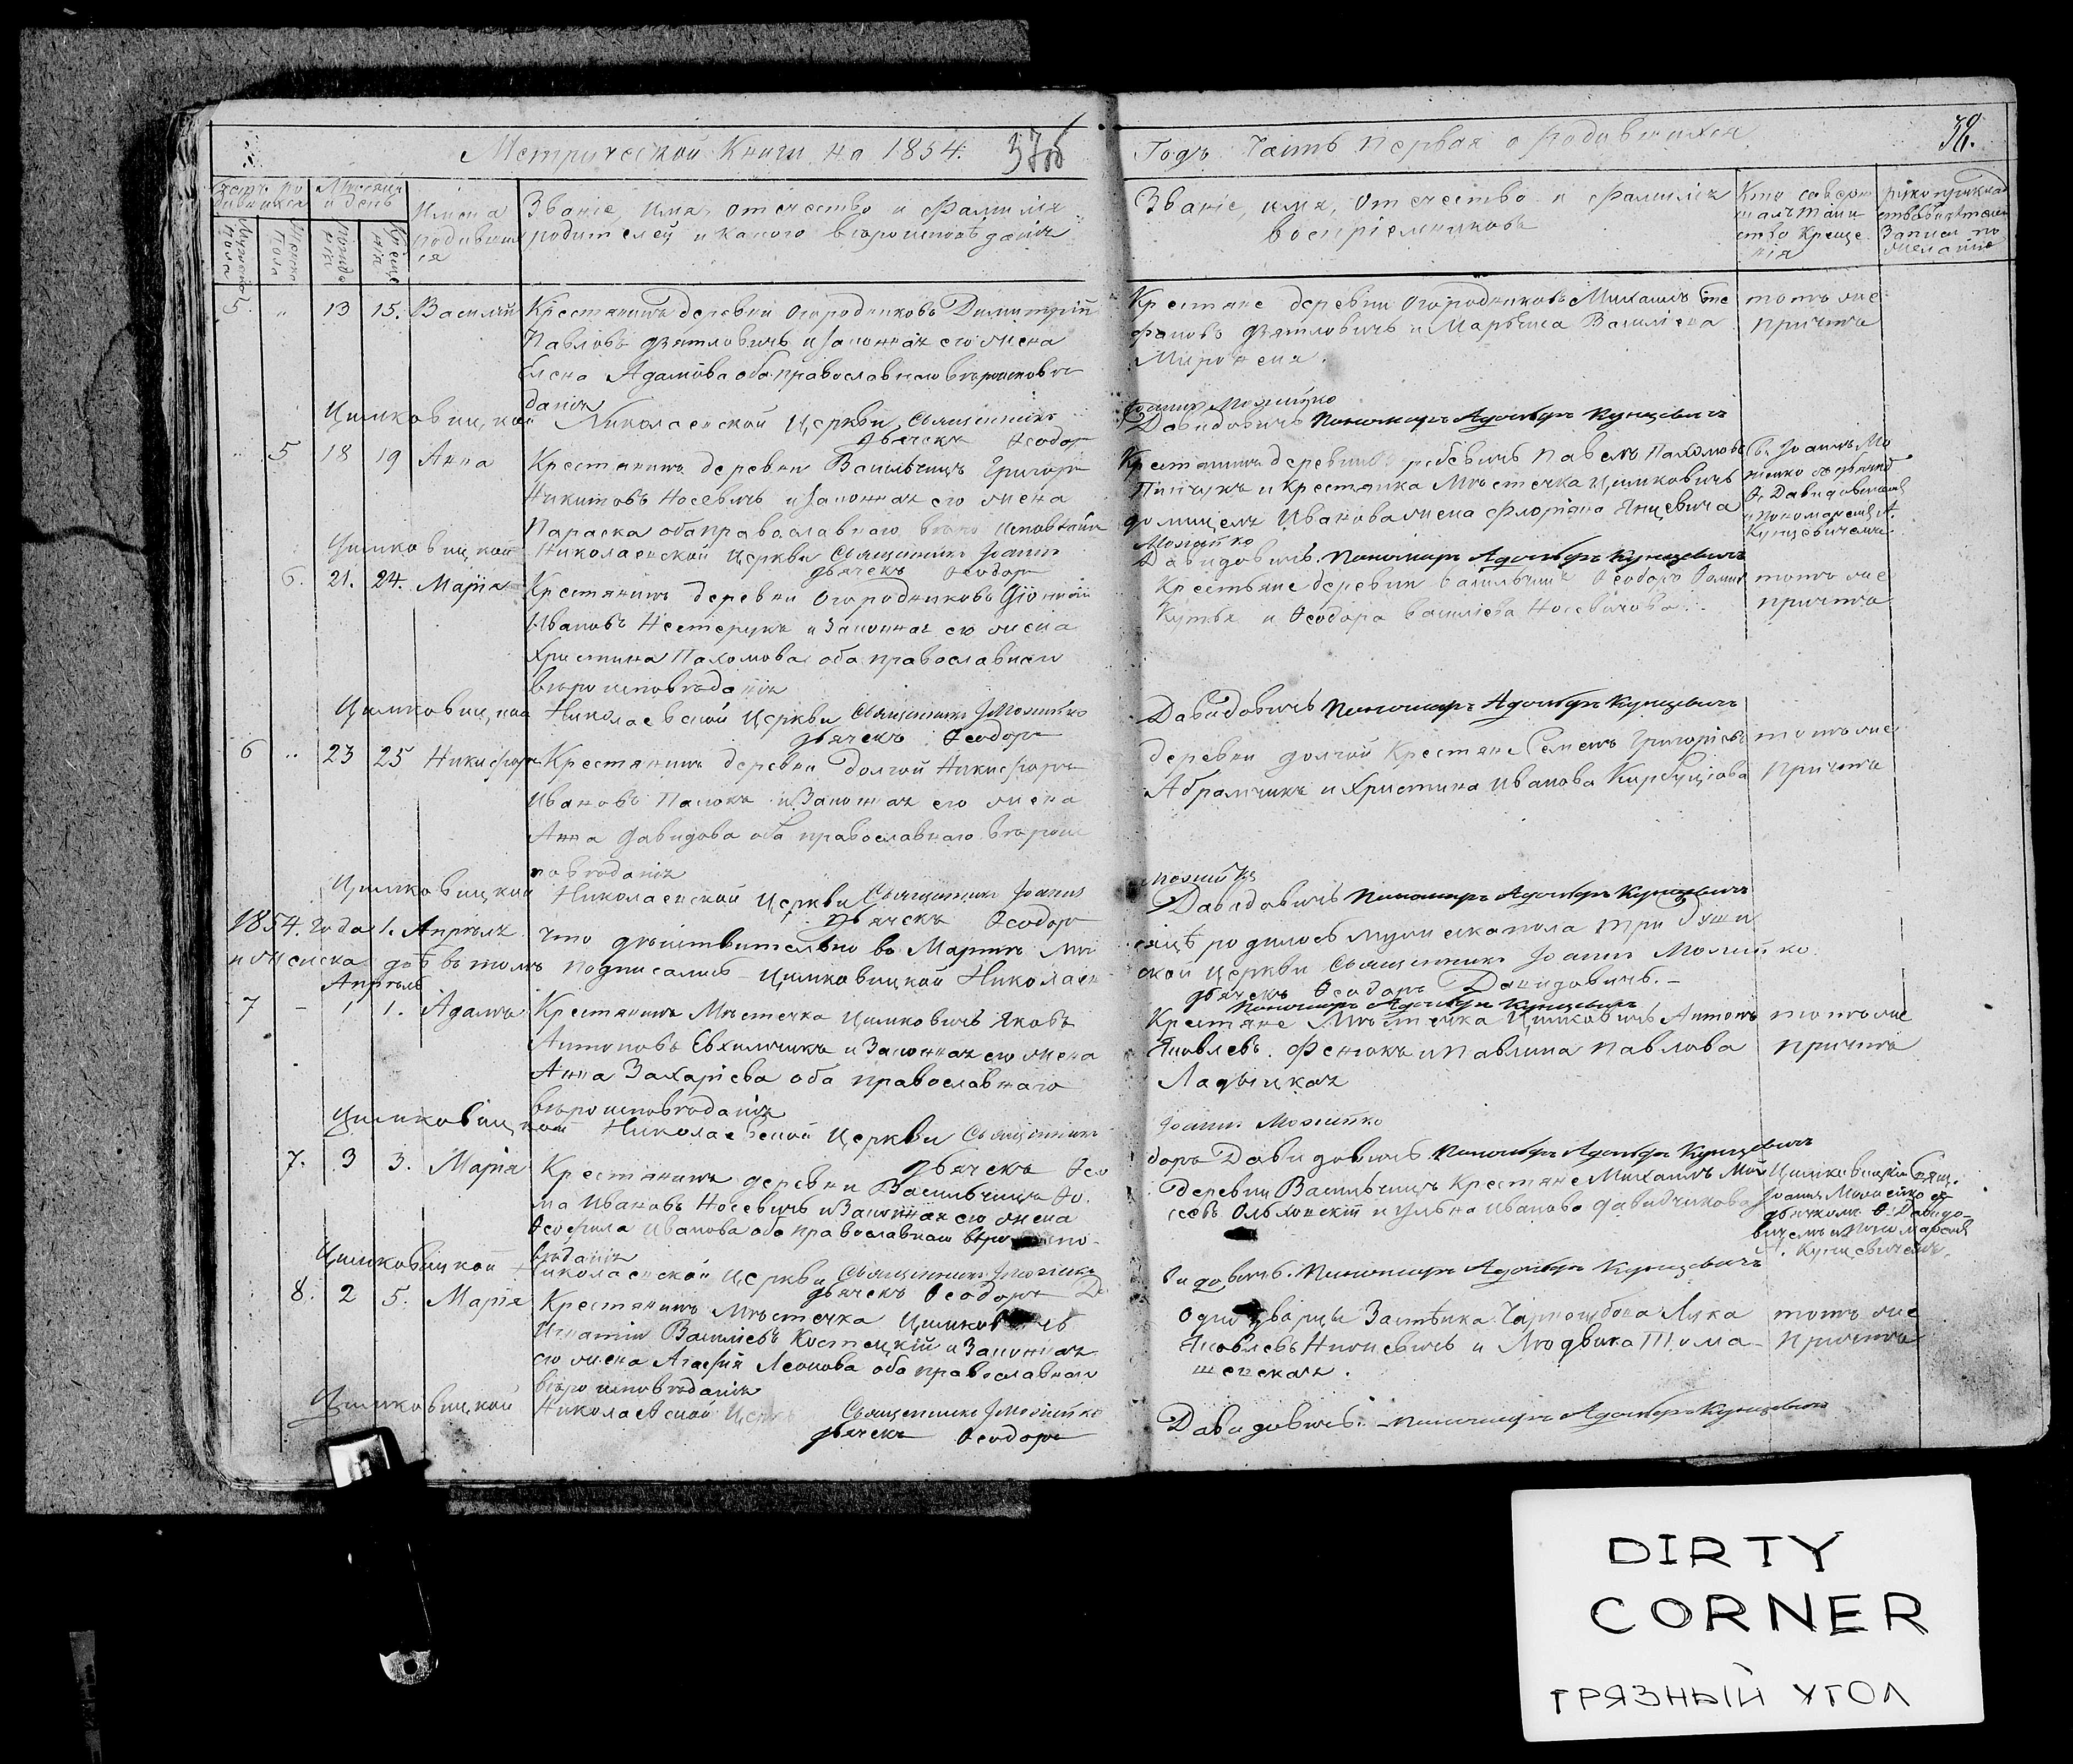 Метрической Книги на 1854. 37об
Годъ Часть Первая о Родившихся 38.
Мѣсяцъ и день
Имена родившихся
Званіе, имя, отечество и фамилія
родителей и какого вѣроисповѣданія
Званіе, имя, отечество и фамилія
воспріемниковъ
Кто совершалъ таинство крещенія
5. 13 15. Василій
Крестянинъ деревни Огородниковъ Димитрій
Павловъ Дятловичъ и законная его жена
Елена Адамова оба православнаго вѣроисповѣ
данія
Крестяне деревни Огородниковъ Михаилъ Сте
фановъ Дятловичъ и Марьяна Василіева
Миронов
тотъ же
причтъ
Цимковицкой Николаевской Церкви Священникъ
Іоаннъ Можейко
Дьячекъ Ѳеодоръ
Давидовичъ Пономарь Адольфъ Кунцевичъ
5 18 19 Анна
Крестянинъ деревни Васильчицъ Григорій
Никитовъ Носевичъ и законная его жена
Параска оба православнаго вѣро исповѣданія
Крестянинъ деревни Павелъ Пахомовъ
Пинчукъ и крестянка Мѣстечка Цимковичъ
Иванова жена Флоріана Янцевича
Св. Іоаннъ Мо
жейко съ дьячко
Ѳ. Давидовичемъ
и Пономаремъ А.
Кунцевичемъ.
Цимковицкой Николаевской Церкви Священникъ Іоаннъ
Можейко
Дьячекъ Ѳеодоръ
Давидовичъ. Пономарь Адольфъ Кунцевичъ
6. 21. 24. Марія
Крестянинъ деревни Огородниковъ
Ивановъ Нестерукъ и законная его жена
Христина Пахомова оба православнаго
вѣроисповѣданія
Крестьяне деревни Васильчицъ Ѳеодоръ
Кутья и Ѳеодора Василіева Носевичова
тотъ же
причтъ
Цимковицкой Николаевской Церкви Священникъ І Можейко
Дьячекъ Ѳеодоръ
Давидовичъ Пономарь Адольфъ Кунцевичъ
6 23 25 Никифоръ
Крестянинъ деревни Долгой Никифоръ
Ивановъ Папокъ и законная его жена
Анна Давидова оба православнаго вѣроис
повѣданія
деревни Долгой Крестяне Семенъ Григоріевъ
Абрамчикъ и Христина Иванова
тотъ же
причтъ
Цимковицкой Николаевской Церкви Священникъ Іоаннъ
Можейко
Дьячекъ Ѳеодоръ
Давидовичъ Пономарь Адольфъ Кунцевичъ
1854. года 1. Апрѣля что дѣйствительно въ Мартѣ мѣ
сяцѣ родилось мужескапола три души
и женска двѣ въ томъ подписались Цимковицкой Николаев
ской Церкви Священникъ Іоаннъ Можейко.
дьячекъ Ѳеодоръ Давидовичъ. –
Пономарь Адольфъ Кунцевичъ
Апрѣль
7 – 1 1. Адамъ
Крестянинъ Мѣстечка Цимковичъ Яковъ
Антоновъ Евхимчикъ и законная его жена
Анна Захаріева оба православнаго
вѣроисповѣданія
Крестяне Мѣстечка Цимковичъ Антонъ
Яковлевъ. Фенюкъ и Павлина Павлова
Ладыцкая
тотъ же
причтъ
Цимковицкой Николаевской Церкви Священникъ
Іоаннъ Можейко
Дьячекъ Ѳео
доръ Давидовичъ. Пономарь Адольфъ Кунцевичъ
7. 3 3. Марія
Крестянинъ деревни Васильчицъ Ѳо
ма Ивановъ Носевичъ и законная его жена
Ѳеофила Иванова оба православнаго вѣроиспо
вѣданія
деревни Васильчицъ Крестяне Михаилъ Мой
сеевъ Ольховскій и Ульяна Иванова Давидчикова
Цимковицкій Свящ.
Іоаннъ Можейко съ
дьячкомъ Ѳ. Давидо-
вичемъ и Пономаремъ
А. Кунцевичемъ.
Цимковицкой Николаевской Церкви Священникъ І Можейко
Дьячекъ Ѳеодоръ Да
видовичъ. Пономарь Адольфъ Кунцевичъ
8. 2 5. Марія
Крестянинъ Мѣстечка Цимковичъ
Игнатій Василіевъ Костецкій и законная
его жена Агафія Леонова оба православнаго
вѣроисповѣданія
Однодворцы Застѣнка Лука
Яковлевъ и Людвика Тома
шевская.
тотъ же
причтъ
Цимковицкой Николаевской Церкви Священникъ І Можейко
Дьячекъ Ѳеодоръ
Давидовичъ. – Пономарь Адольфъ Кунцевичъ
DIRTY
CORNER
ГРЯЗНЫЙ УГОЛ